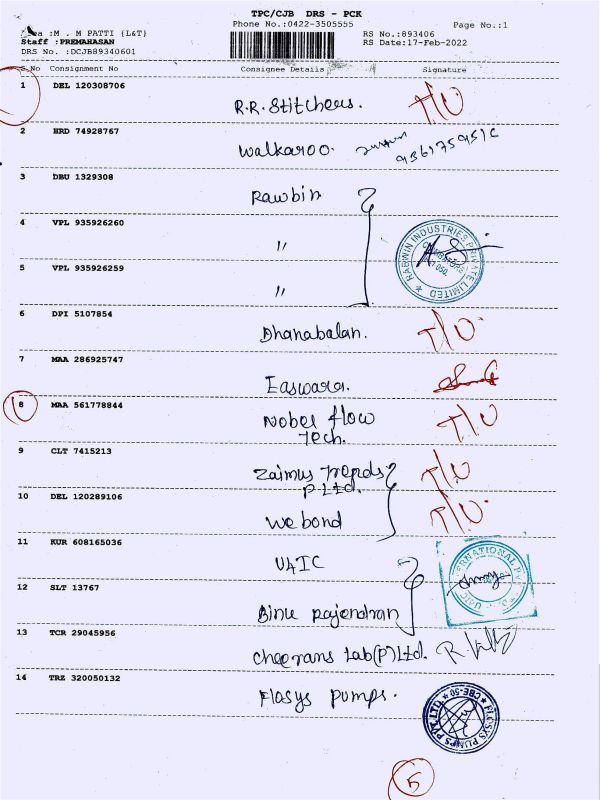 TPC/CJB DRS - PCK
Phone No.:0422-3505555 Page No.:1
:M . M PATTI {L&T}
Staff :PREMAHASAN
RS No.:893406
DRS No. :DCJB89340601
RS Date:17-Feb-2022
S.No Consignment No Consignee Details Signature
1 DEL 120308706 R.R. Stitchers. T/O
2 HRD 74928767 Walkaroo.
3 DBU 1329308 Rawbin
4 VPL 935926260 "
RABWIN INDUSTRIES PRIVATE LIMITED
5 VPL 935926259 "
6 DPI 5107854 Dhanabalan. T/O.
7 MAA 286925747 Easwara.
8 MAA 561778844 Nobel flow Tech. T/O
9 CLT 7415213 Zaimus Trends P Ltd. T/O
10 DEL 120289106 We bond T/O.
11 KUR 608165036 U4IC
12 SLT 13767 Binu Rajendran
13 TCR 29045956 Cheerans Lab(P)Ltd.
14 TRZ 320050132 Flosys Pumps.
FLOSYS PUMPS PVT LTD CBE-50
5